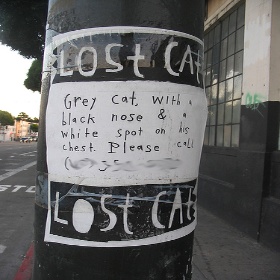 LOST CAT
Grey cat, with a
black nose &
white spot on his
chest. Please call
LOST CAT